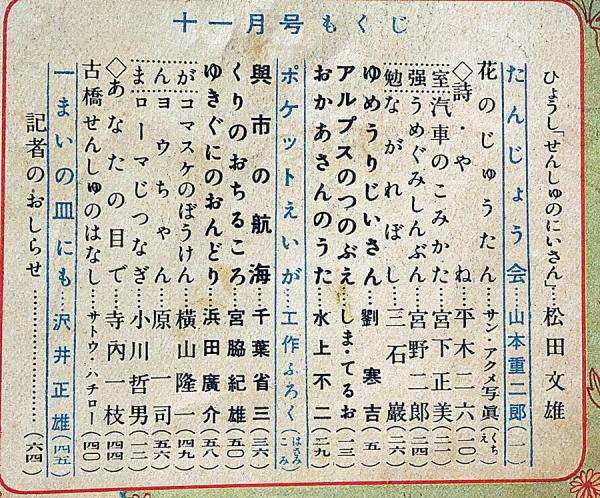 十一月号もくじ
ひょうし「せんしゅのにいさん」…松田文雄
たんじょう会…山本重二郎(一)
花のじゅうたん…サン・アクメ写眞(くちえ)
◇詩・やね…平木二六(一〇)
室汽車のこみかた…宮下正美(二一)
强うめぐみしんぶん…宮野二郎(二四)
勉ながれぼし…三石巖(二六)
ゆめうりじいさん…劉寒吉(五)
アルプスのつのぶえ…しま・てるお(一三)
おかあさんのうた…水上不二(二九)
ポケットえいが…工作ふろく(はさみこみ)
與市の航海…千葉省三(三六)
くりのおちるころ…宮脇紀雄(五〇)
ゆきぐにのおんどり…浜田廣介(五八)
がコマスケのぼうけん…橫山隆一(四九)
んヨウちゃん…原一司(五六)
まローマじつなぎ…小川哲男(一二)
◇あなたの目で…寺內一枝(四四)
古橋せんしゅのはなし…サトウ・ハチロー(四〇)
一まいの皿にも…沢井正雄(四五)
記者のおしらせ………………(六四)